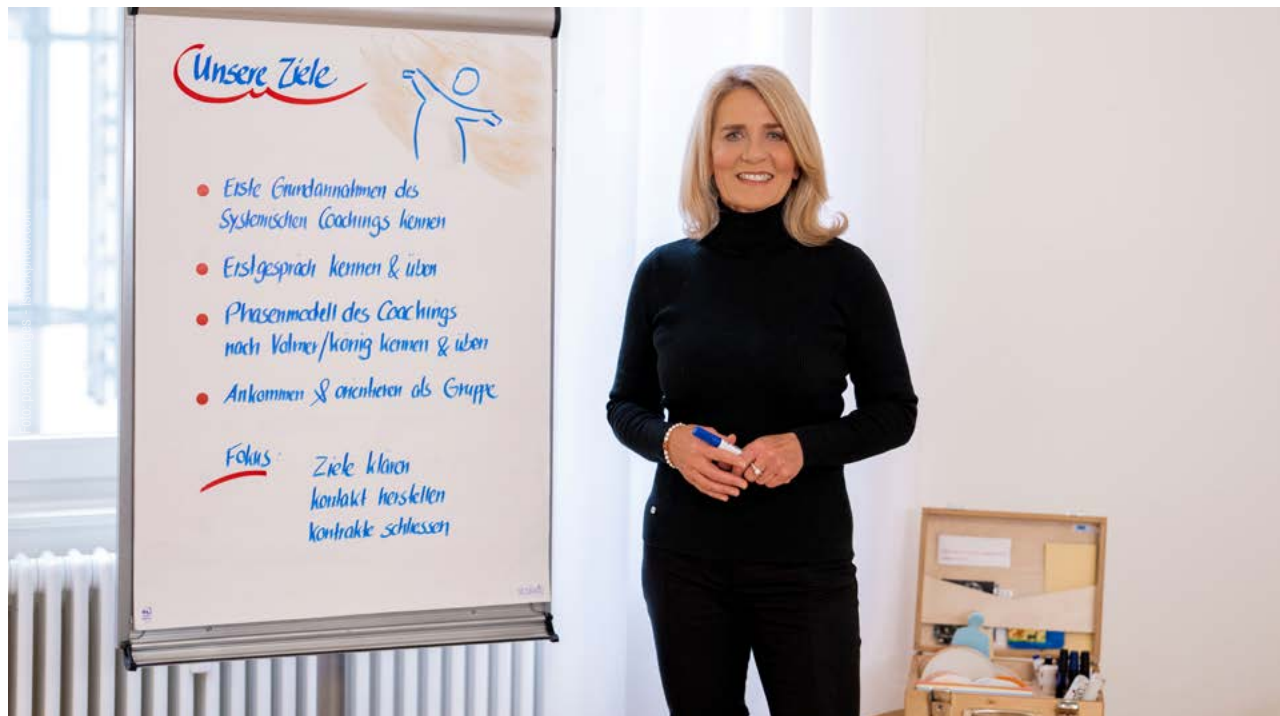 Unsere Ziele
Erste Grundannahmen des
Systemischen Coachings kennen
Erstgespräch kennen & üben
Phasenmodell des Coachings
nach Volmer/König kennen & üben
Ankommen & orientieren als Gruppe
Fokus:
Ziele klären
Kontakt herstellen
Kontrakte schliessen